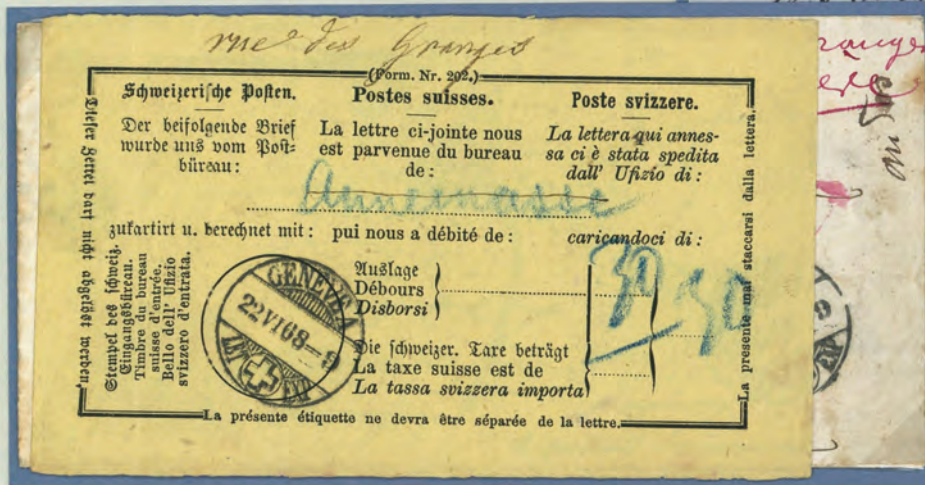 rue des Granges
(Form. Nr. 202.)
Schweizerische Posten.
Der beifolgende Brief
wurde uns vom Post-
büreau:
Postes suisses.
La lettre ci-jointe nous
est parvenue du bureau
de:
Poste svizzere.
La lettera qui annes-
sa ci è stata spedita
dall' Ufizio di:
Annemasse
zukartirt u. berechnet mit:
pui nous a débité de:
caricandoci di:
Auslage
Débours
Disborsi
30
30
Die schweizer. Taxe beträgt
La taxe suisse est de
La tassa svizzera importa
Stempel des schweiz.
Eingangsbüreau.
Timbre du bureau
suisse d'entrée.
Bello dell' Ufizio
svizzero d'entrata.
GENÈVE
22 VI 08–9
EXP
Dieser Zettel darf nicht abgelöst werden.
La présente étiquette ne devra être séparée de la lettre.
La presente mai staccarsi dalla lettera.